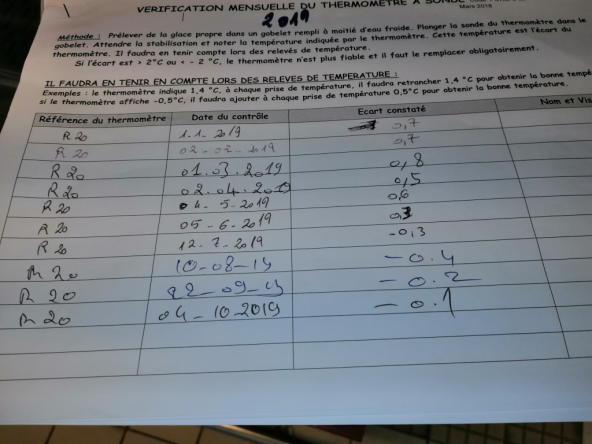 VERIFICATION MENSUELLE DU THERMOMETRE A SONDE
Mars 2018
2019
Méthode : Prélever de la glace propre dans un gobelet rempli à moitié d'eau froide. Plonger la sonde du thermomètre dans le
gobelet. Attendre la stabilisation et noter la température indiquée par le thermomètre. Cette température est l'écart du
thermomètre. Il faudra en tenir compte lors des relevés de température.
Si l'écart est > 2°C ou < - 2 °C, le thermomètre n'est plus fiable et il faut le remplacer obligatoirement.
IL FAUDRA EN TENIR EN COMPTE LORS DES RELEVES DE TEMPERATURE :
Exemples : le thermomètre indique 1,4 °C, à chaque prise de température, il faudra retrancher 1,4 °C pour obtenir la bonne tempé
si le thermomètre affiche -0,5°C, il faudra ajouter à chaque prise de température 0,5°C pour obtenir la bonne température.
Référence du thermomètre Date du contrôle Ecart constaté Nom et Vis
R 20 1.1. 2019 0,7
R 20 02 - 02 - 2019 0,7
R 20 01.03.2019 0,8
R 20 02.04.2019 0,5
R 20 04 - 5 - 2019 0,6
R 20 05 - 6 - 2019
R 20 12 - 7 - 2019 -0,3
R 20 10-08-19 - 0.4
R 20 22-09-19 - 0.2
R 20 04 - 10-2019 - 0.1